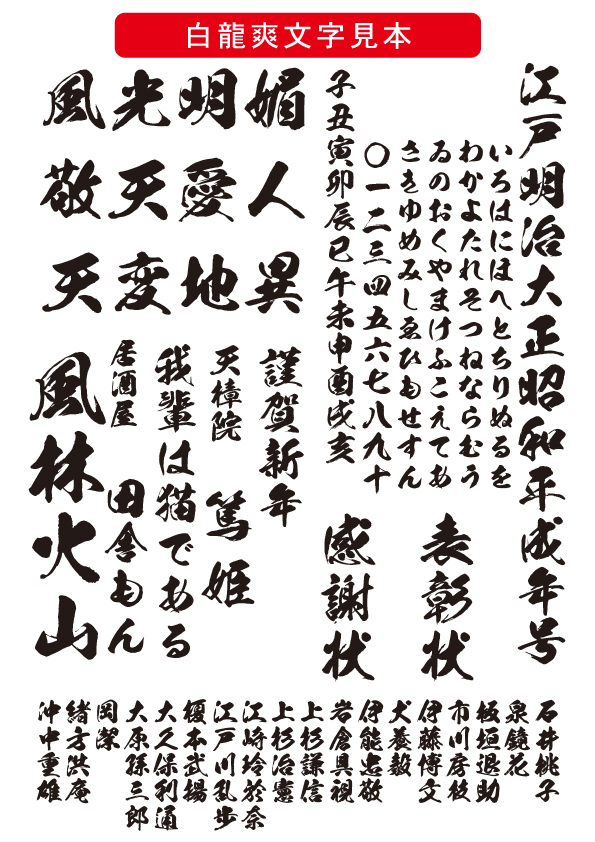 白龍爽文字見本
江戸明治大正昭和平成年号
いろはにほへとちりぬるを
わかよたれそつねならむう
ゐのおくやまけふこえてあ
さきゆめみしゑひもせすん
〇一二三四五六七八九十
子丑寅卯辰巳午未申酉戌亥
表彰状
感謝状
媚人異
明愛地
光天変
風敬天
謹賀新年
天樟院
篤姫
我輩は猫である
居酒屋
田舎もん
風林火山
石井桃子
泉鏡花
板垣退助
市川房枝
伊藤博文
犬養毅
伊能忠敬
岩倉具視
上杉謙信
上杉治憲
江崎玲於奈
江戸川乱歩
榎本武揚
大久保利通
大原孫三郎
岡潔
緒方洪庵
沖中重雄